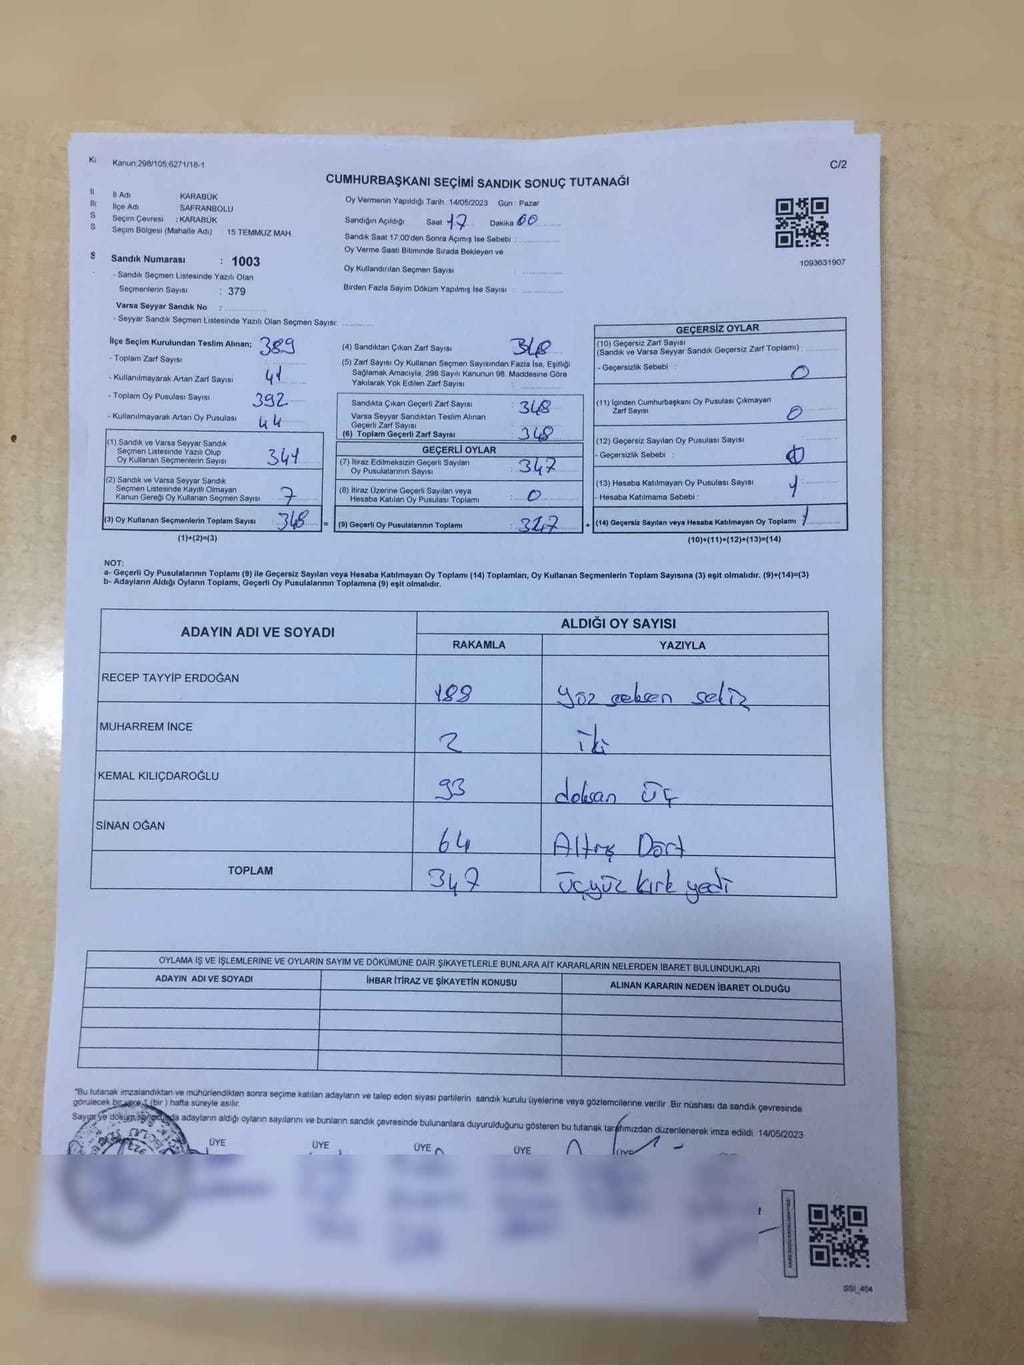 Kanun:298/105;6271/18-1
C/2
CUMHURBAŞKANI SEÇİMİ SANDIK SONUÇ TUTANAĞI
İl Adı KARABÜK
İlçe Adı SAFRANBOLU
Seçim Çevresi : KARABÜK
Seçim Bölgesi (Mahalle Adı) 15 TEMMUZ MAH.
Sandık Numarası : 1003
- Sandık Seçmen Listesinde Yazılı Olan
Seçmenlerin Sayısı : 379
Varsa Seyyar Sandık No :
- Seyyar Sandık Seçmen Listesinde Yazılı Olan Seçmen Sayısı:
Oy Vermenin Yapıldığı Tarih : 14/05/2023 Gün : Pazar
Sandığın Açıldığı Saat 17 Dakika 00
Sandık Saat 17:00'den Sonra Açımış İse Sebebi :
Oy Verme Saati Bitiminde Sırada Bekleyen ve
Oy Kullandırılan Seçmen Sayısı :
Birden Fazla Sayım Döküm Yapılmış İse Sayısı :
1093631907
İlçe Seçim Kurulundan Teslim Alınan; 389
- Toplam Zarf Sayısı
- Kullanılmayarak Artan Zarf Sayısı 41
- Toplam Oy Pusulası Sayısı 392
- Kullanılmayarak Artan Oy Pusulası 44
(1) Sandık ve Varsa Seyyar Sandık
Seçmen Listesinde Yazılı Olup
Oy Kullanan Seçmenlerin Sayısı 341
(2) Sandık ve Varsa Seyyar Sandık
Seçmen Listesinde Kayıtlı Olmayan
Kanun Gereği Oy Kullanan Seçmen Sayısı 7
(3) Oy Kullanan Seçmenlerin Toplam Sayısı 348 =
(1)+(2)=(3)
(4) Sandıktan Çıkan Zarf Sayısı 348
(5) Zarf Sayısı Oy Kullanan Seçmen Sayısından Fazla İse, Eşitliği
Sağlamak Amacıyla, 298 Sayılı Kanunun 98. Maddesine Göre
Yakılarak Yok Edilen Zarf Sayısı :
Sandıkta Çıkan Geçerli Zarf Sayısı : 348
Varsa Seyyar Sandıktan Teslim Alınan
Geçerli Zarf Sayısı :
(6) Toplam Geçerli Zarf Sayısı : 348
GEÇERLİ OYLAR
(7) İtiraz Edilmeksizin Geçerli Sayılan
Oy Pusulalarının Sayısı : 347
(8) İtiraz Üzerine Geçerli Sayılan veya
Hesaba Katılan Oy Pusulası Toplamı : 0
(9) Geçerli Oy Pusulalarının Toplamı : 347 +
GEÇERSİZ OYLAR
(10) Geçersiz Zarf Sayısı
(Sandık ve Varsa Seyyar Sandık Geçersiz Zarf Toplamı) :
- Geçersizlik Sebebi : 0
(11) İçinden Cumhurbaşkanı Oy Pusulası Çıkmayan
Zarf Sayısı 0
(12) Geçersiz Sayılan Oy Pusulası Sayısı
- Geçersizlik Sebebi : 0
(13) Hesaba Katılmayan Oy Pusulası Sayısı 1
- Hesaba Katılmama Sebebi :
(14) Geçersiz Sayılan veya Hesaba Katılmayan Oy Toplamı : 1
(10)+(11)+(12)+(13)=(14)
NOT:
a- Geçerli Oy Pusulalarının Toplamı (9) ile Geçersiz Sayılan veya Hesaba Katılmayan Oy Toplamı (14) Toplamları, Oy Kullanan Seçmenlerin Toplam Sayısına (3) eşit olmalıdır. (9)+(14)=(3)
b- Adayların Aldığı Oyların Toplamı, Geçerli Oy Pusulalarının Toplamına (9) eşit olmalıdır.
ADAYIN ADI VE SOYADI ALDIĞI OY SAYISI
RAKAMLA YAZIYLA
RECEP TAYYİP ERDOĞAN 188 Yüz seksen sekiz
MUHARREM İNCE 2 iki
KEMAL KILIÇDAROĞLU 93 doksan üç
SİNAN OĞAN 64 Altmış Dört
TOPLAM 347 üçyüz kırk yedi
OYLAMA İŞ VE İŞLEMLERİNE VE OYLARIN SAYIM VE DÖKÜMÜNE DAİR ŞİKAYETLERLE BUNLARA AİT KARARLARIN NELERDEN İBARET BULUNDUKLARI
ADAYIN ADI VE SOYADI İHBAR İTİRAZ VE ŞİKAYETİN KONUSU ALINAN KARARIN NEDEN İBARET OLDUĞU
*Bu tutanak imzalandıktan ve mühürlendikten sonra seçime katılan adayların ve talep eden siyasi partilerin sandık kurulu üyelerine veya gözlemcilerine verilir. Bir nüshası da sandık çevresinde
görülecek bir yere 1 (bir) hafta süreyle asılır.
Sayım ve döküm sonucunda adayların aldığı oyların sayılarını ve bunların sandık çevresinde bulunanlara duyurulduğunu gösteren bu tutanak tarafımızdan düzenlenerek imza edildi. 14/05/2023
ÜYE ÜYE ÜYE ÜYE ÜYE
SSİ_404